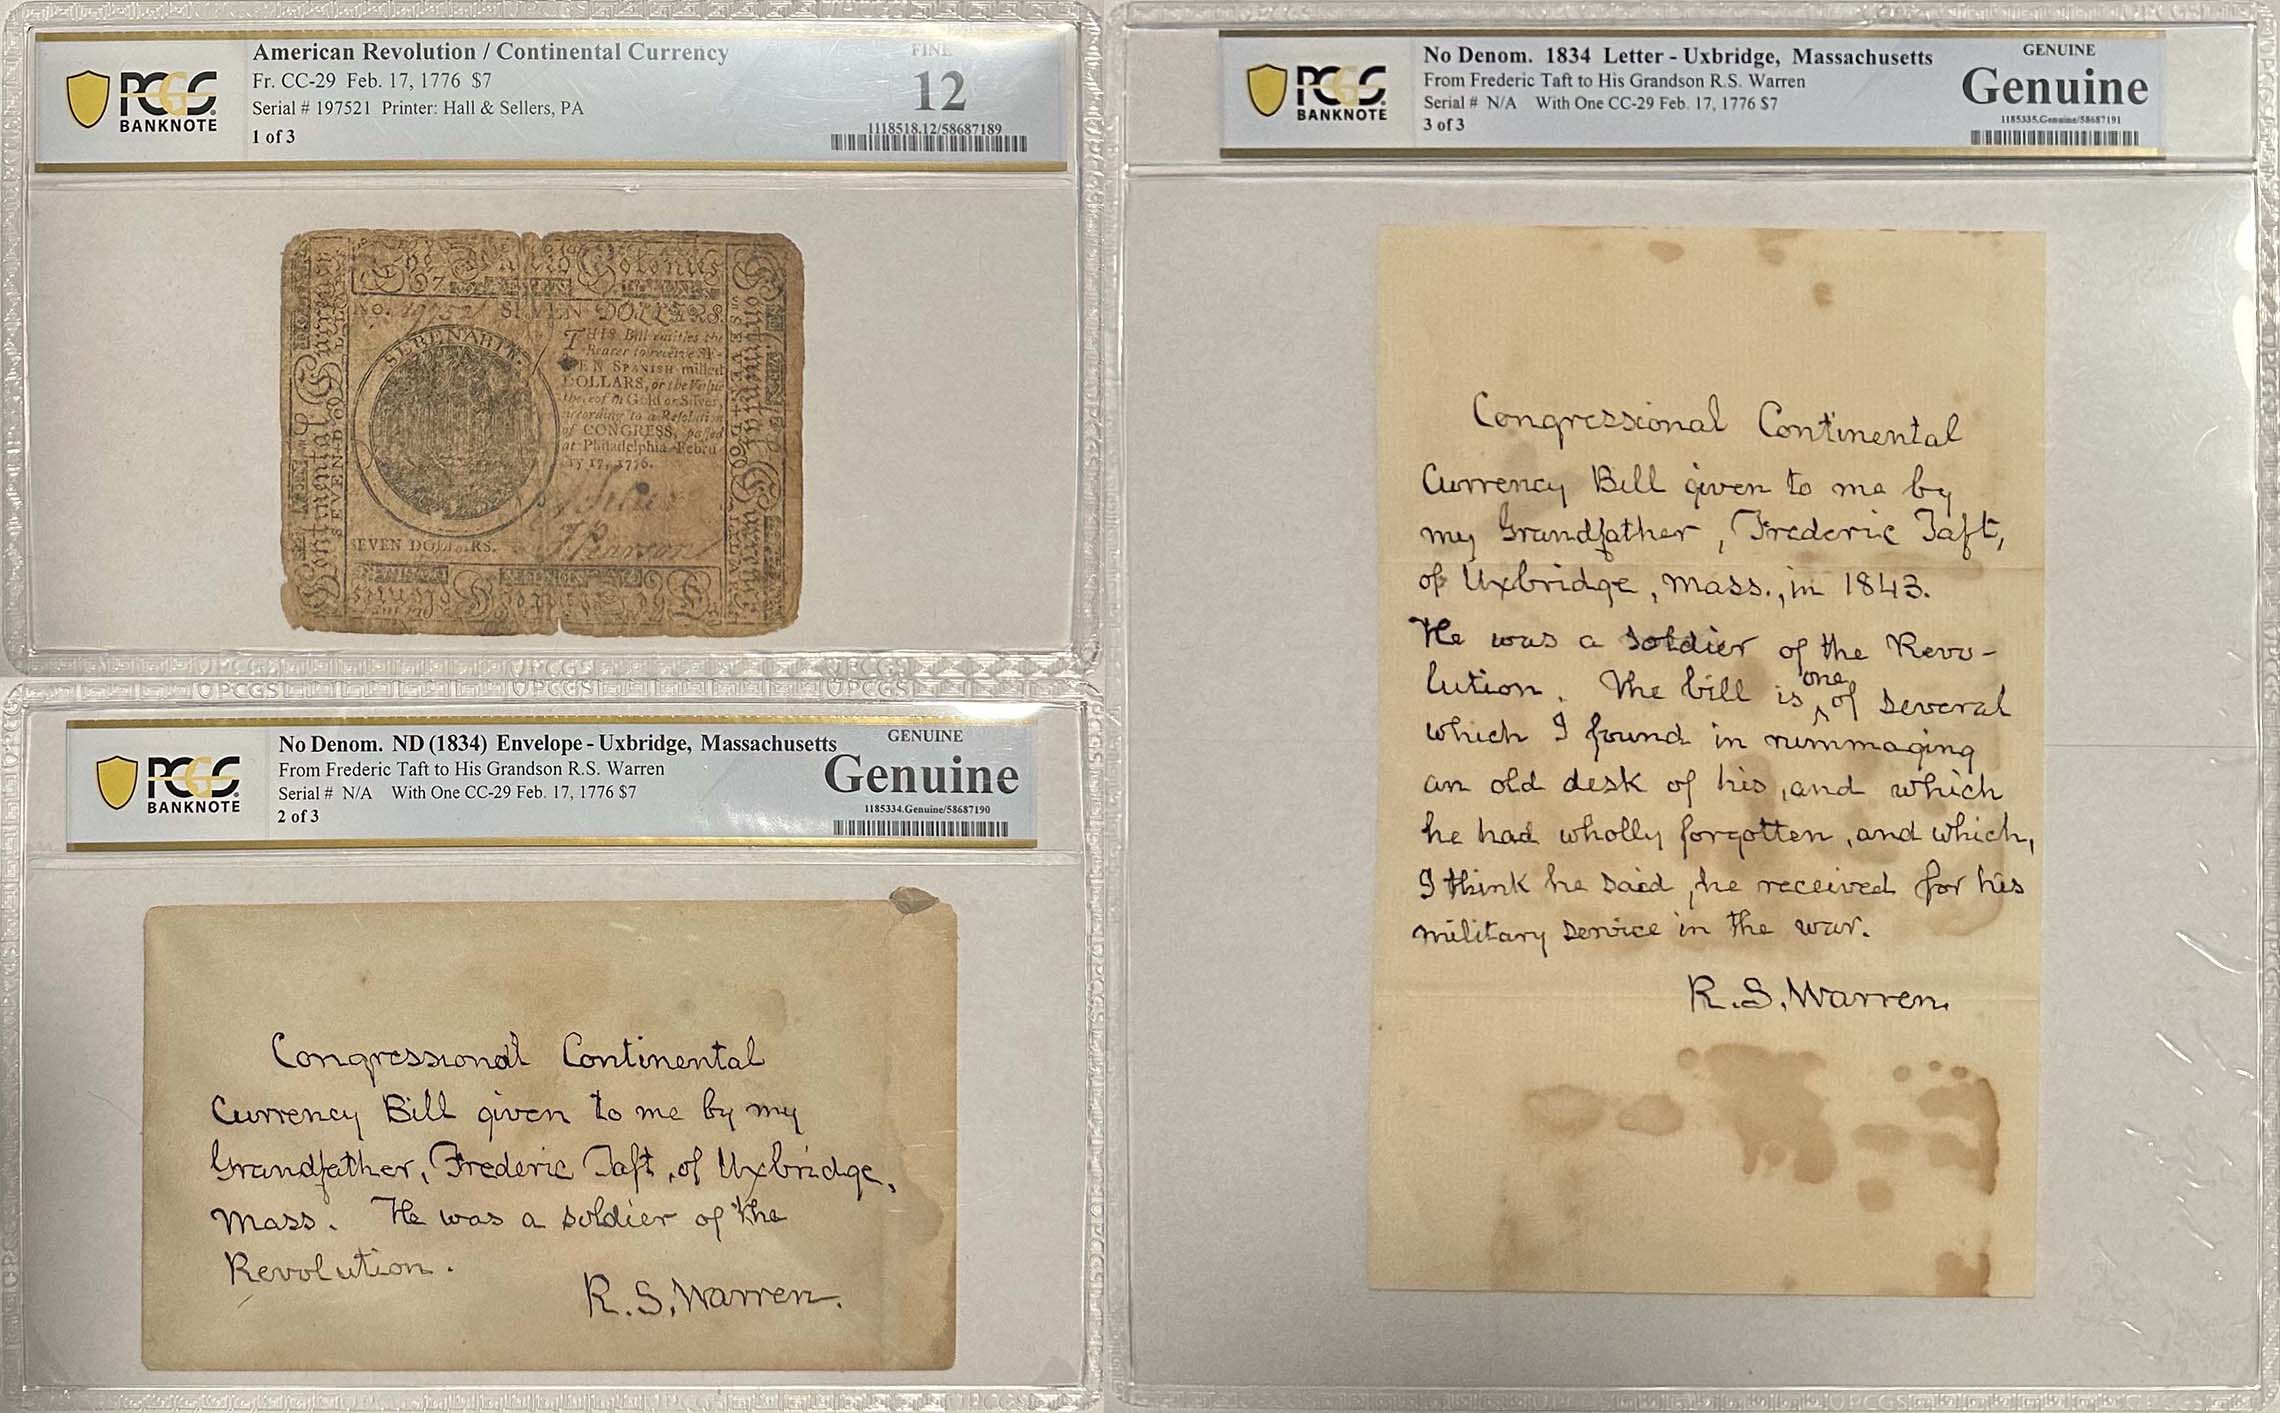 PCGS
BANKNOTE
American Revolution / Continental Currency
Fr. CC-29 Feb. 17, 1776 $7
Serial # 197521 Printer: Hall & Sellers, PA
1 of 3
FINE
12
1118518.12/58687189
The United Colonies
Continental Currency
No. 197521 SEVEN DOLLARS.
SERENABIT.
THIS Bill entitles the
Bearer to receive SE-
VEN SPANISH milled
DOLLARS, or the Value
thereof in Gold or Silver
according to a Resolution
of CONGRESS, passed
at Philadelphia Febru-
ry 17, 1776.
J Pearson
SEVEN DOLLARS.
PCGS
BANKNOTE
No Denom. ND (1834) Envelope - Uxbridge, Massachusetts
From Frederic Taft to His Grandson R.S. Warren
Serial # N/A With One CC-29 Feb. 17, 1776 $7
2 of 3
GENUINE
Genuine
1185334.Genuine/58687190
Congressional Continental
Currency Bill given to me by my
Grandfather, Frederic Taft, of Uxbridge,
Mass. He was a soldier of the
Revolution.
R. S. Warren.
PCGS
BANKNOTE
No Denom. 1834 Letter - Uxbridge, Massachusetts
From Frederic Taft to His Grandson R.S. Warren
Serial # N/A With One CC-29 Feb. 17, 1776 $7
3 of 3
GENUINE
Genuine
1185335.Genuine/58687191
Congressional Continental
Currency Bill given to me by
my Grandfather, Frederic Taft,
of Uxbridge, Mass., in 1843.
He was a soldier of the Revo-
lution. The bill is one of several
which I found in rummaging
an old desk of his, and which
he had wholly forgotten, and which,
I think he said, he received for his
military service in the war.
R. S. Warren.